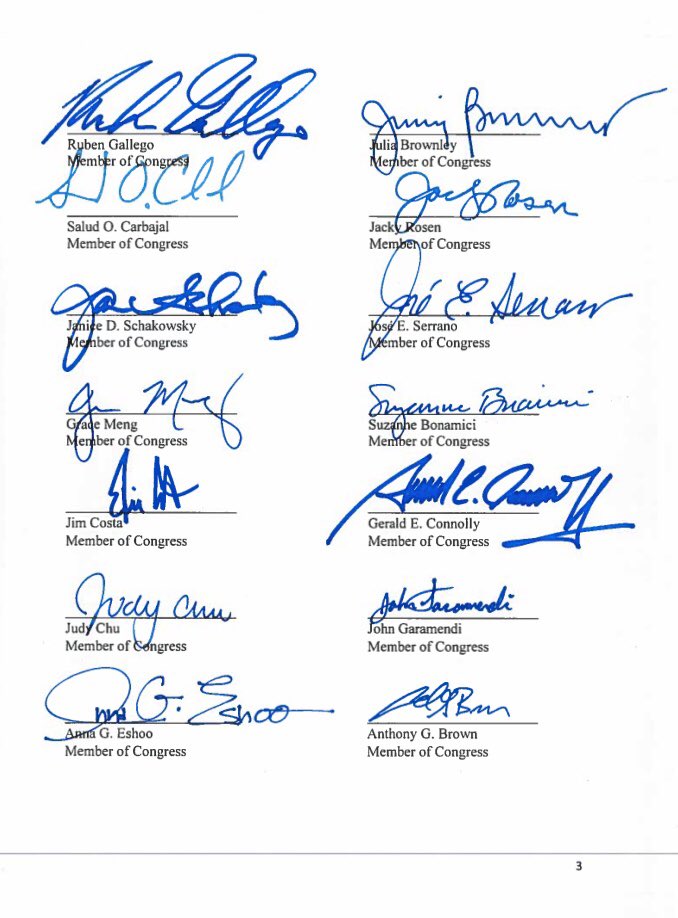 Ruben Gallego
Member of Congress
Julia Brownley
Member of Congress
Salud O. Carbajal
Member of Congress
Jacky Rosen
Member of Congress
Janice D. Schakowsky
Member of Congress
José E. Serrano
José E. Serrano
Member of Congress
Grace Meng
Member of Congress
Suzanne Bonamici
Member of Congress
Jim Costa
Member of Congress
Gerald E. Connolly
Member of Congress
Judy Chu
Judy Chu
Member of Congress
John Garamendi
John Garamendi
Member of Congress
Anna G. Eshoo
Anna G. Eshoo
Member of Congress
Anthony G. Brown
Member of Congress
3